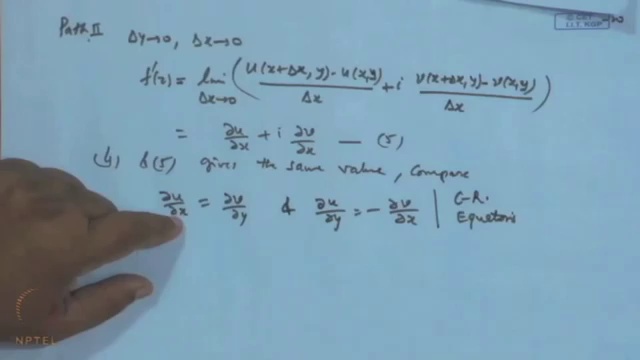 Path II Δy→0, Δx→0
f'(z) = lim Δx→0 ( u(x+Δx, y) - u(x,y) / Δx + i v(x+Δx, y) - v(x,y) / Δx )
= ∂u/∂x + i ∂v/∂x — (5)
(4) & (5) gives the same value, Compare
∂u/∂x = ∂v/∂y & ∂u/∂y = - ∂v/∂x | C-R. Equations
© CET
I.I.T. KGP
NPTEL